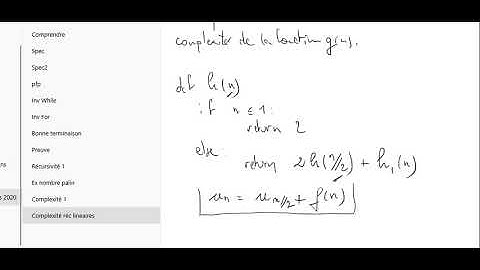 Comprendre
Spec
Spec2
pfp
Inv While
Inv For
Bonne terminaison
Preuve
Récursivité 1
Ex nombre palin
Complexité 1
Complexité rec lineaires
ns
s 2020
complexité de la fonction g(n).
def h(n)
if n ≤ 1:
return 2
else:
return 2h(n/2) + h₁(n)
uₙ = uₙ/₂ + f(n)